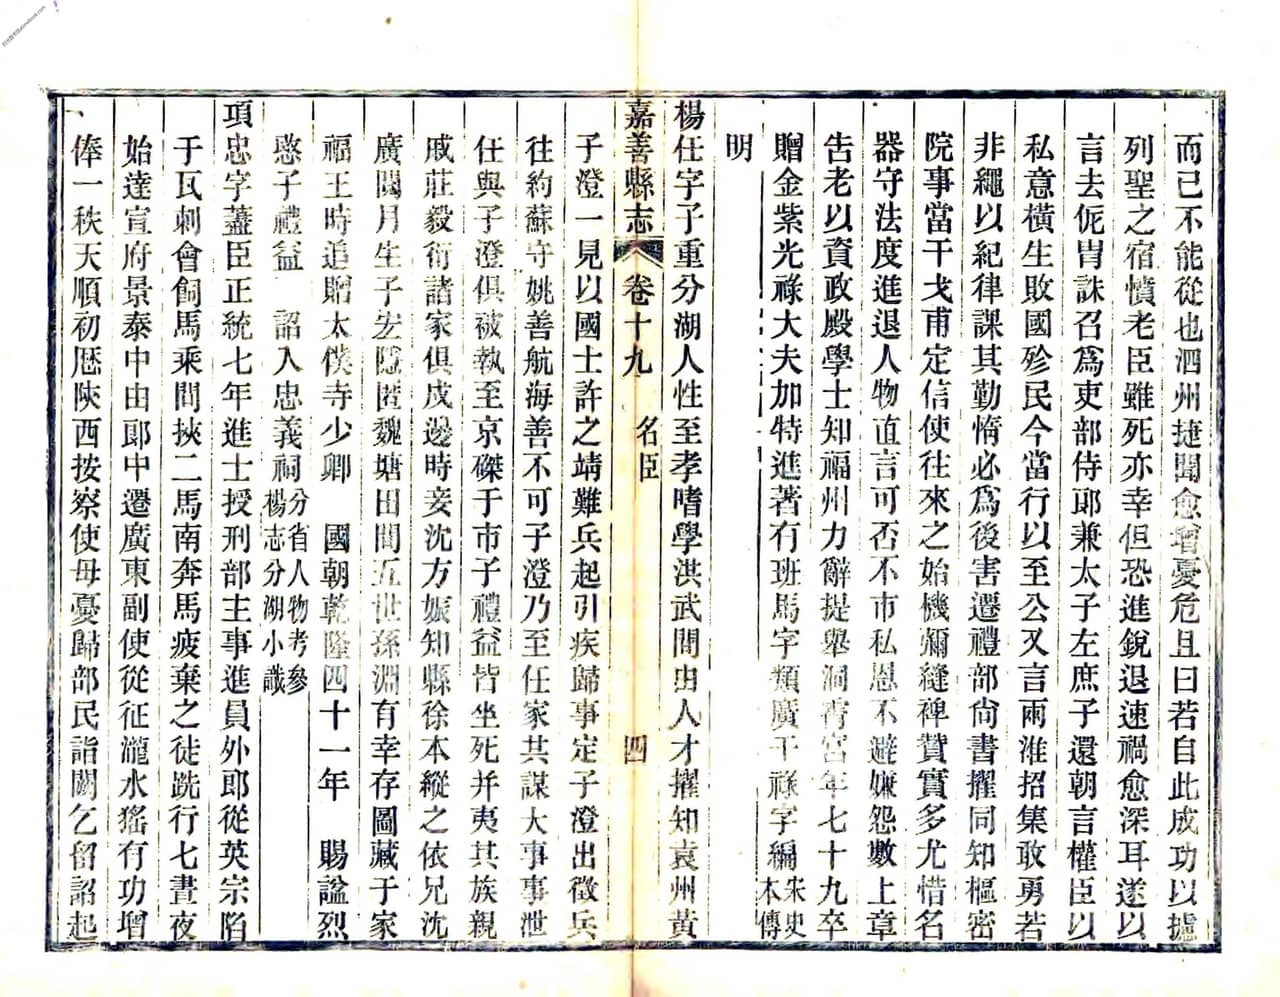 而已不能從也泗州捷聞愈增憂危且曰若自此成功以攄
列聖之宿憤老臣雖死亦幸但恐進銳退速禍愈深耳遂以
言去侂胄誅召爲吏部侍郎兼太子左庶子還朝言權臣以
私意橫生敗國殄民今當行以至公又言兩淮招集敢勇若
非繩以紀律課其勤惰必爲後害遷禮部尙書擢同知樞密
院事當干戈甫定信使往來之始機彌縫裨贊實多尤惜名
器守法度進退人物直言可否不市私恩不避嫌怨數上章
吿老以資政殿學士知福州力辭提舉洞霄宮年七十九卒
贈金紫光祿大夫加特進著有班馬字類廣干祿字編宋史
本傳
明
楊任字子重分湖人性至孝嗜學洪武間由人才擢知袁州黃
嘉善縣志 卷十九 名臣 四
子澄一見以國士許之靖難兵起引疾歸事定子澄出徵兵
往約蘇守姚善航海善不可子澄乃至任家共謀大事事泄
任與子澄俱被執至京磔于市子禮益皆坐死并夷其族親
戚莊毅衍諸家俱戍邊時妾沈方娠知縣徐本縱之依兄沈
廣閱月生子宏隱匿魏塘田間五世孫淵有幸存圖藏于家
福王時追贈太僕寺少卿 國朝乾隆四十一年 賜諡烈
愍子禮益 詔入忠義祠分省人物考參
楊志分湖小識
項忠字藎臣正統七年進士授刑部主事進員外郎從英宗陷
于瓦剌會飼馬乘間挾二馬南奔馬疲棄之徒跣行七晝夜
始達宣府景泰中由郎中遷廣東副使從征瀧水猺有功增
俸一秩天順初歷陝西按察使母憂歸部民詣闕乞留詔起